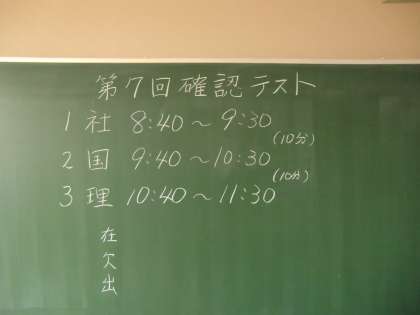 第7回確認テスト
1 社 8:40〜9:30
(10分)
2 国 9:40〜10:30
(10分)
3 理 10:40〜11:30
在
欠
出